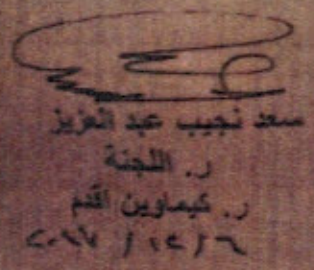 سعد نجيب عبد العزيز
ر. اللجنة
ر. كيماوين اقدم
٢٠١٧ / ١٢ / ٦